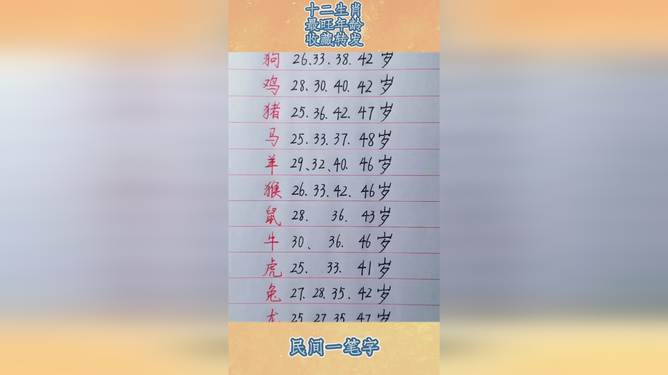 十二生肖
最旺年龄
收藏转发
狗 26.33.38.42岁
鸡 28.30.40.42岁
猪 25.36.42.47岁
马 25.33.37.48岁
羊 29、32、40.46岁
猴 26.33.42.46岁
鼠 28. 36. 43岁
牛 30、 36. 46岁
虎 25. 33. 41岁
兔 27.28.35.42岁
龙 25.27.35.47岁
民间一笔字